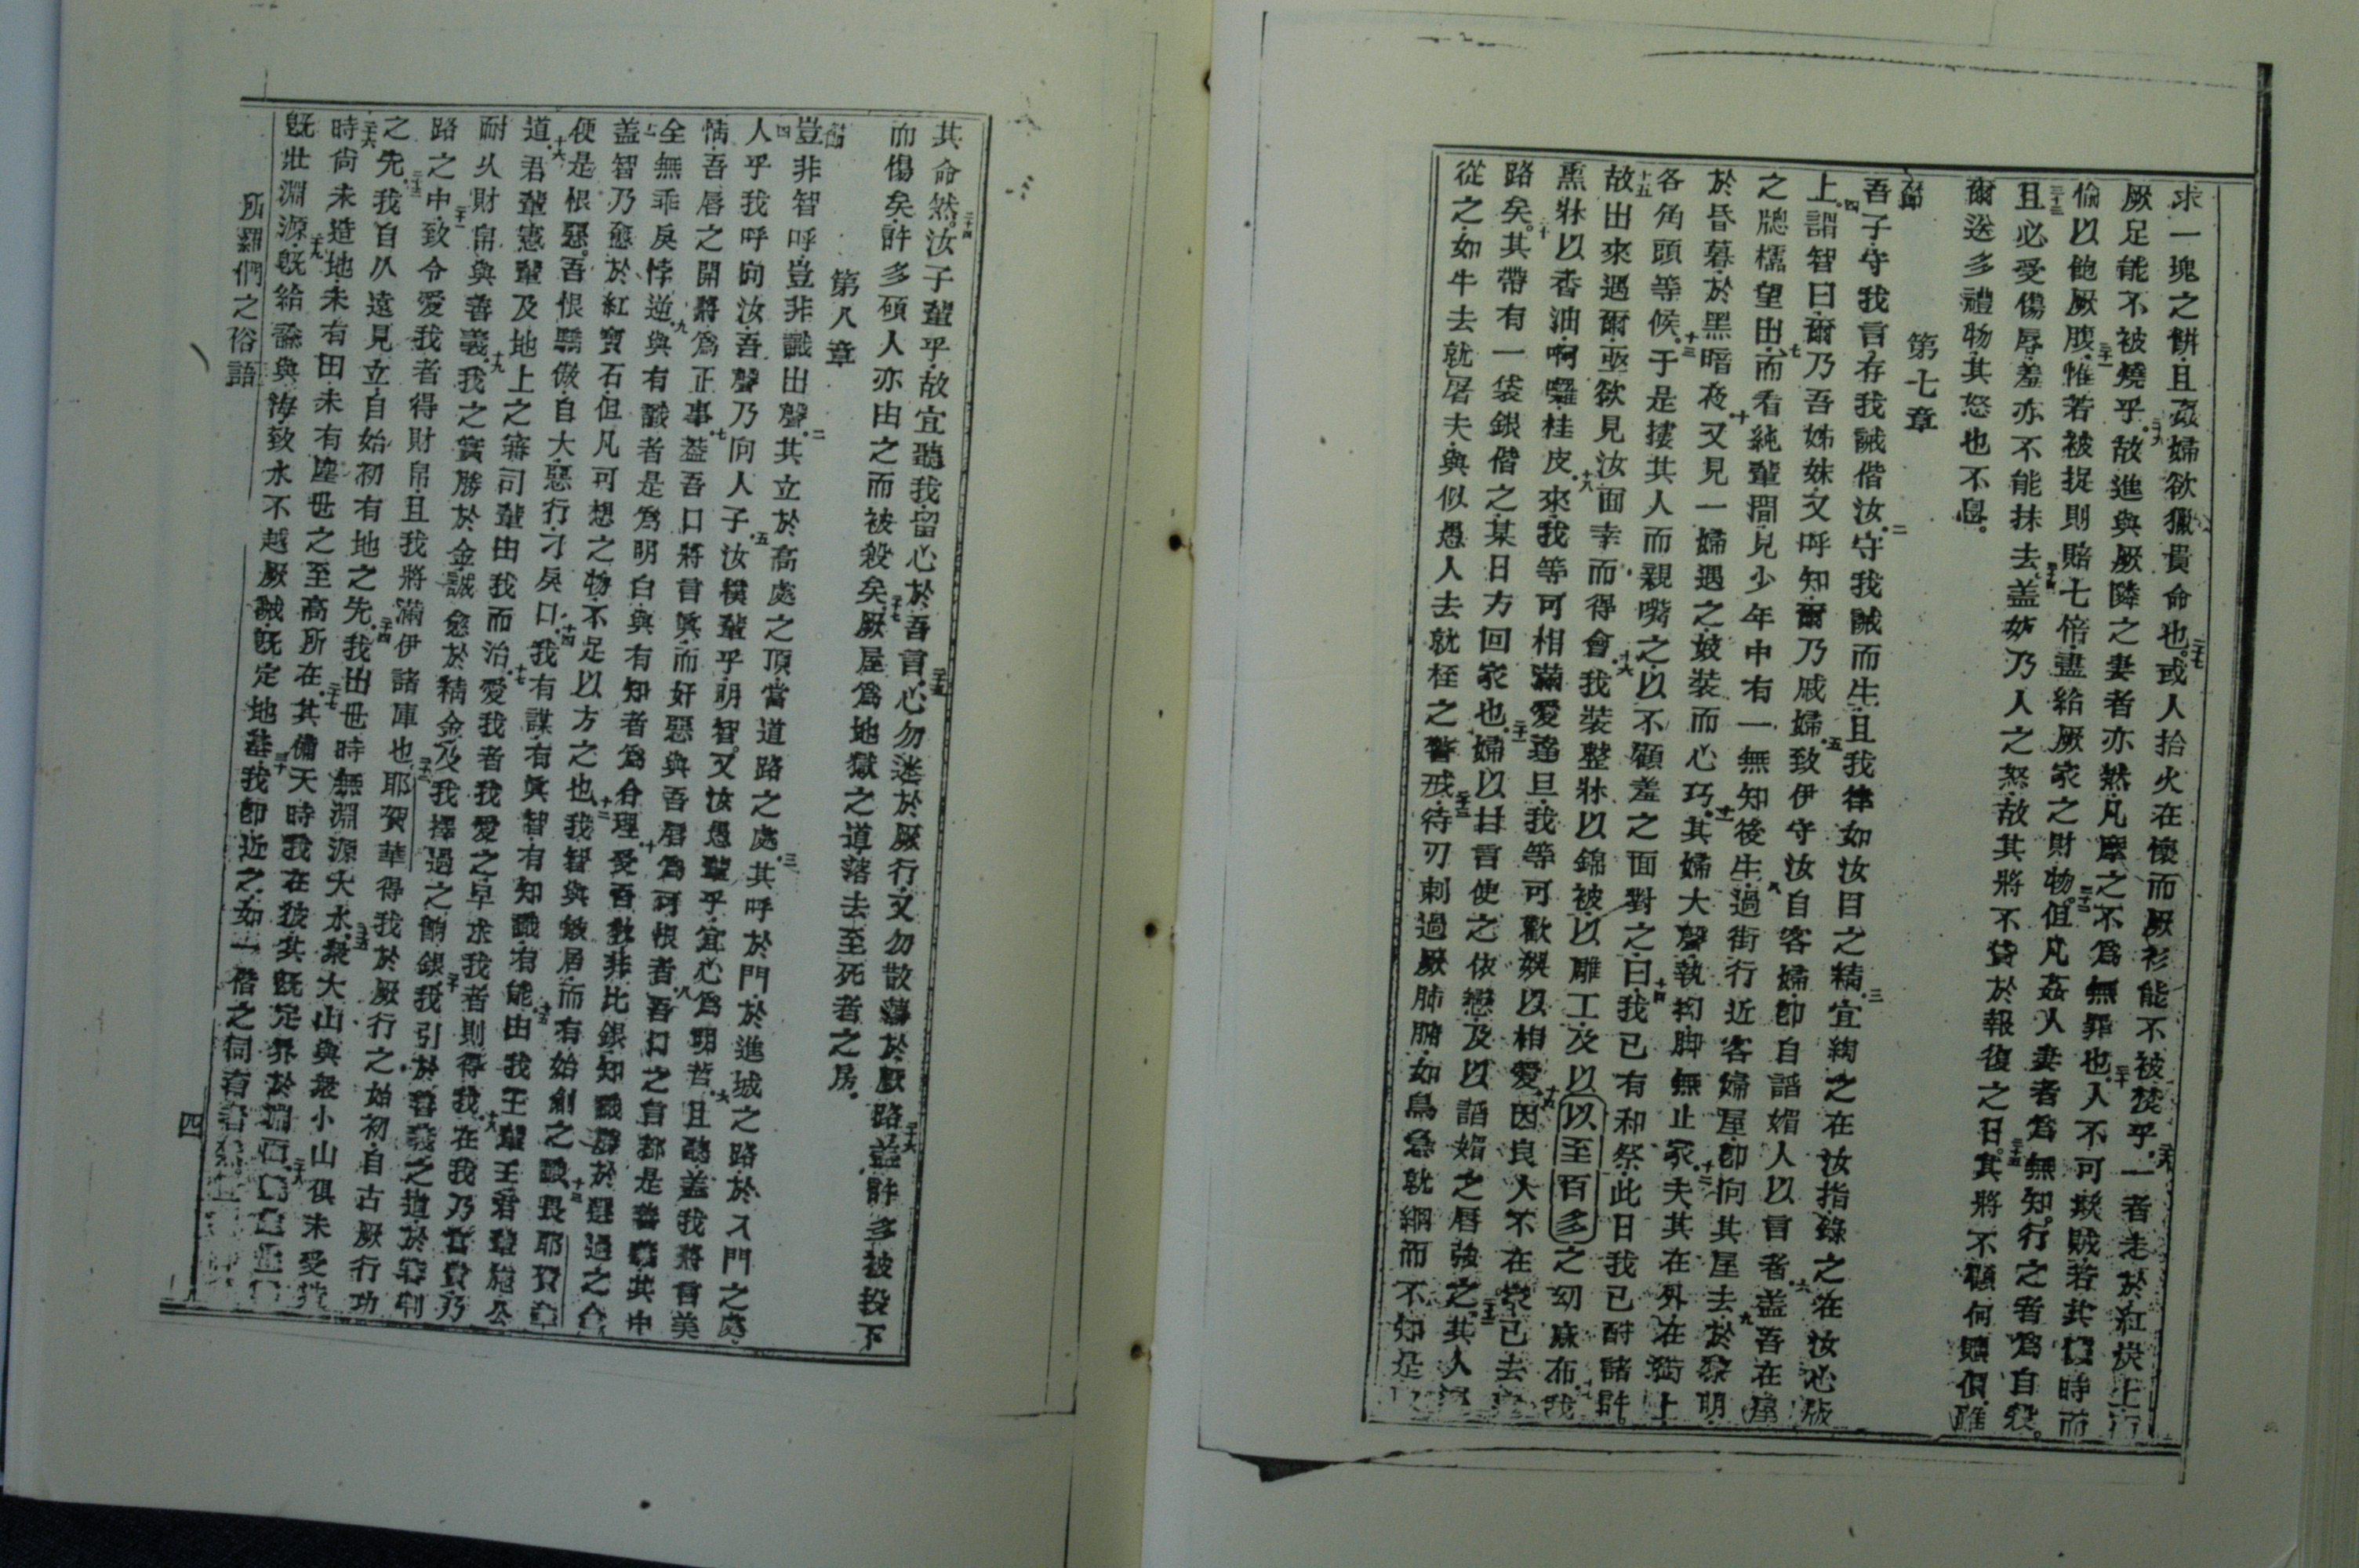 求一塊之餅且姦婦欲獵貴命也或人拾火在懷而厥衫能不被焚乎一者走於紅炭上而
厥足能不被燒乎故進與厥隣之妻者亦然凡摩之不爲無罪也人不可欺賊若其時而
偷以飽厥腹惟若被捉則賠七倍盡給厥家之財物但凡姦人妻者爲無知行之者爲自
且必受傷辱羞亦不能抹去盖妒乃人之怒故其將不貸於報復之日其將不顧何贖價雖
爾送多禮物其怒也不息
第七章
吾子守我言存我誡偕汝守我誡而生且我律如汝目之精宜綯之在汝指錄之在汝心版
上謂智曰爾乃吾姊妹又呼知爾乃戚婦致伊守汝自客婦卽自謟媚人以言者盖吾在屋
之牕櫺望出而看純輩間見少年中有一無知後生過街行近客婦屋卽向其屋去於黎明
於昏暮於黑暗夜又見一婦遇之妓裝而心巧其婦大聲執拘脚無止家夫其在外在街上
各角頭等候于是摟其人而親嘴之以不顧羞之面對之曰我已有和祭此日我已酧諸許
故出來遇爾亟欲見汝面幸而得會我裝整牀以錦被以雕工及以以至百多之幼麻布我
熏牀以香油啊囉桂皮來我等可相滿愛達旦我等可歡娛以相愛因良人不在家已去
路矣其帶有一袋銀偕之某日方回家也婦以甘言使之依戀及以謟媚之唇強之其人
從之如牛去就屠夫與似愚人去就桎之警戒待刃刺過厥肺腑如鳥急就網而不知是
其命然汝子輩乎故宜聽我留心於吾言心勿迷於厥行又勿散蕩於厥路盖許多被投下
而傷矣許多碩人亦由之而被殺矣厥屋爲地獄之道落去至死者之房
第八章
豈非智呼豈非識出聲其立於高處之頂當道路之處其呼於門於進城之路於入門之處
人乎我呼向汝吾聲乃向人子汝樸輩乎明智又汝愚輩乎宜心爲明哲且聽盖我將言美
情吾唇之開將爲正事盖吾口將言眞而奸惡與吾唇爲可恨者吾口之言都是善義其中
全無乖戾悖逆與有識者是爲明白與有知者爲合理受吾敎非比銀知識勝於選過之金
盖智乃愈於紅寶石但凡可想之物不足以方之也我智與敏居而有始創之識畏耶賀華
便是恨惡吾恨驕傲自大惡行刁戾口我有謀有眞智有知識有能由我王輩王君輩施公
道君輩憲輩及地上之審司輩由我而治愛我者我愛之早求我者則得我在我乃富貴乃
耐久財帛與善義我之寶勝於金誠愈於精金及我擇過之餉銀我引於善義之道於審判
路之中致令愛我者得財帛且我將滿伊諸庫也耶賀華得我於厥行之始初自古厥行功
之先我自从遠見立自始初有地之先我出世時無淵源大水衆大山與衆小山俱未受
時尚未造地未有田未有塵世之至高所在其備天時我在彼其旣定界於淵面
旣壯淵源旣給諭與海致水不越厥誡旣定地基我卽近之如一偕之伺有者
所羅們之俗語
四